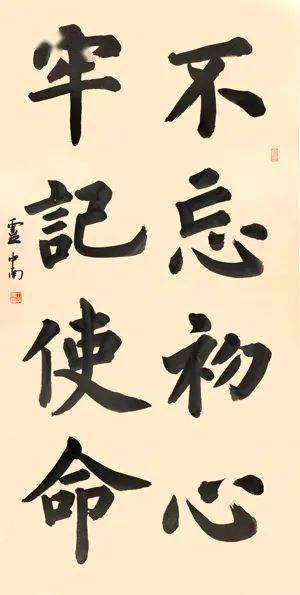 不忘初心
牢記使命
靈中南